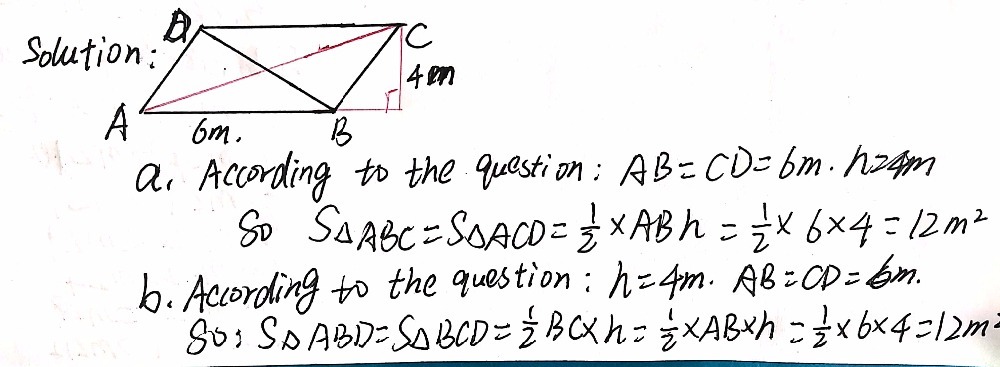 Solution:
D
C
4m
A
6m.
B
a. According to the question: AB=CD=6m. h=4m
So S△ABC=S△ACD=½×AB h=½×6×4=12m²
b. According to the question: h=4m. AB=CD=6m.
So: S△ABD=S△BCD=½BC×h=½×AB×h=½×6×4=12m²